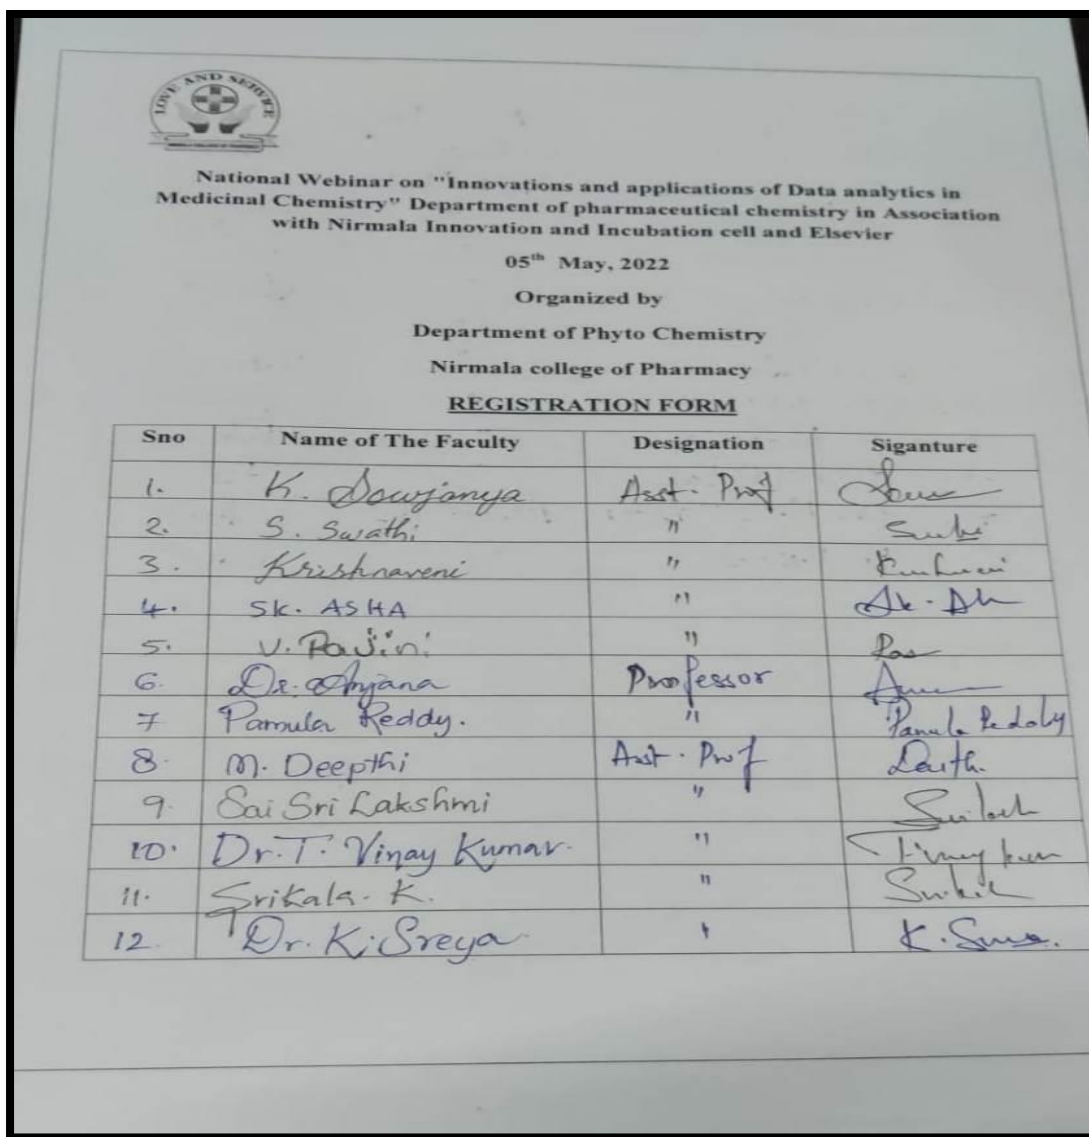 LOVE AND SERVICE
National Webinar on "Innovations and applications of Data analytics in
Medicinal Chemistry" Department of pharmaceutical chemistry in Association
with Nirmala Innovation and Incubation cell and Elsevier
05th May, 2022
Organized by
Department of Phyto Chemistry
Nirmala college of Pharmacy
REGISTRATION FORM
Sno Name of The Faculty Designation Siganture
1. K. Sowjanya Asst. Prof
2. S. Swathi "
3. Krishnaveni "
4. SK. ASHA "
5. V. Rajini "
6. Dr. Anjana Professor
7 Pamula Reddy. " Pamula Reddy
8. M. Deepthi Asst. Prof
9. Sai Sri Lakshmi "
10. Dr. T. Vinay Kumar. "
11. Srikala. K. "
12. Dr. K. Sreya "